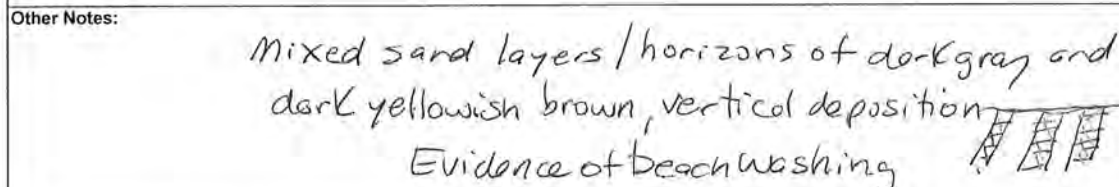 Other Notes:
Mixed sand layers/horizons of dark gray and
dark yellowish brown, vertical deposition
Evidence of beach washing